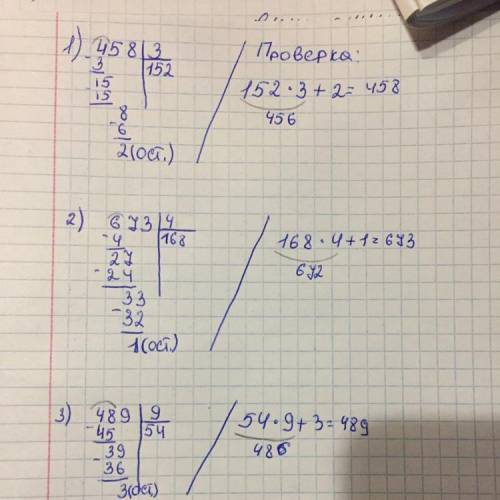 1) 458 | 3
- 3 | 152
- 15
15
8
- 6
2 (ост.)
Проверка:
152 · 3 + 2 = 458
456
2) 673 | 4
- 4 | 168
27
- 24
33
- 32
1 (ост.)
168 · 4 + 1 = 673
672
3) 489 | 9
- 45 | 54
39
- 36
3 (ост)
54 · 9 + 3 = 489
486